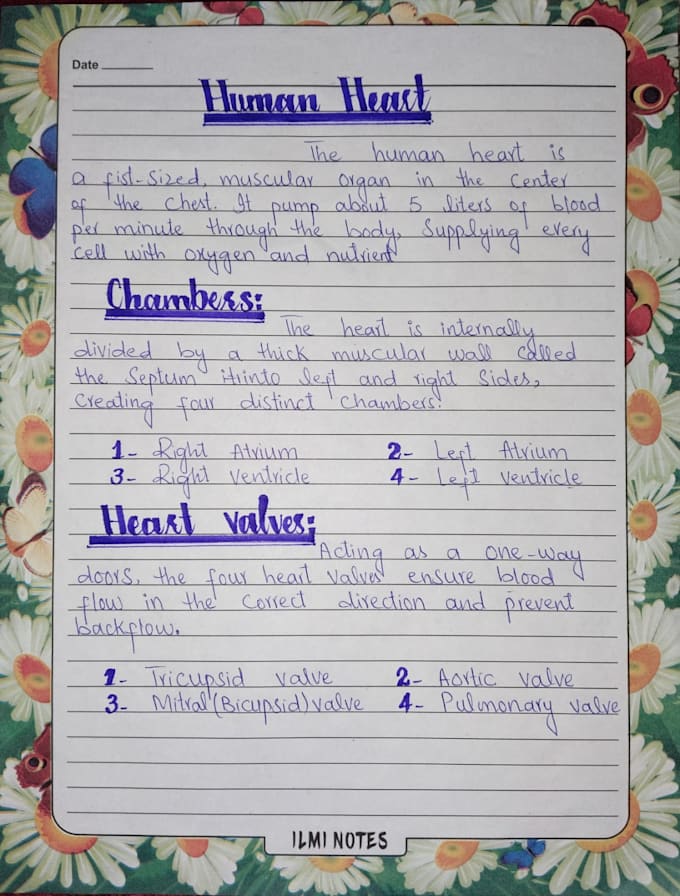 Date
Human Heart
The human heart is
a fist-sized, muscular organ in the center
of the chest. It pump about 5 liters of blood
per minute through the body, supplying every
cell with oxygen and nutrient
Chambers:
The heart is internally
divided by a thick muscular wall called
the Septum into left and right sides,
creating four distinct chambers:
1- Right Atrium 2- Left Atrium
3- Right ventricle 4- Left ventricle
Heart valves:
Acting as a one-way
doors, the four heart valves ensure blood
flow in the correct direction and prevent
backflow.
1- Tricupsid valve 2- Aortic valve
3- Mitral (Bicupsid) valve 4- Pulmonary valve
ILMI NOTES